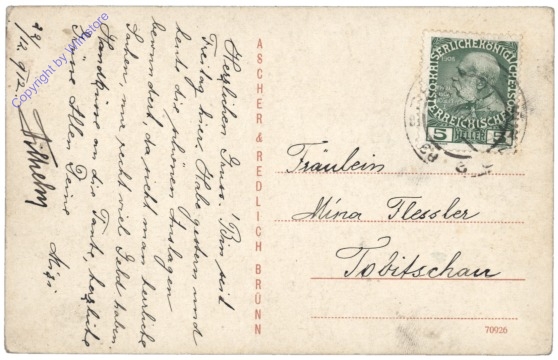 29/12 912.
Herzlichen Gruss! Bin seit
Freitag hier. Habe gestern und
heute die schönen Auslagen
bewundert, da sieht man herrliche
Sachen, nur recht viel Geld haben.
Handküsse an die Tante, herzliche
Grüsse Allen Deine
Mizi
Wilhelm
Copyright by Wilnitore
ASCHER & REDLICH BRÜNN
KAISERLICHE KÖNIGLICHE
ÖSTERREICHISCHE
1908
5 HELLER 5
Fräulein
Mina Flessler
Tobitschau
70926